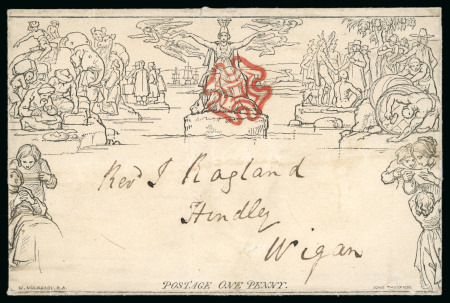 Rev J Ragland
Hindley
Wigan
POSTAGE ONE PENNY.
W. MULREADY. R.A.
JOHN THOMPSON